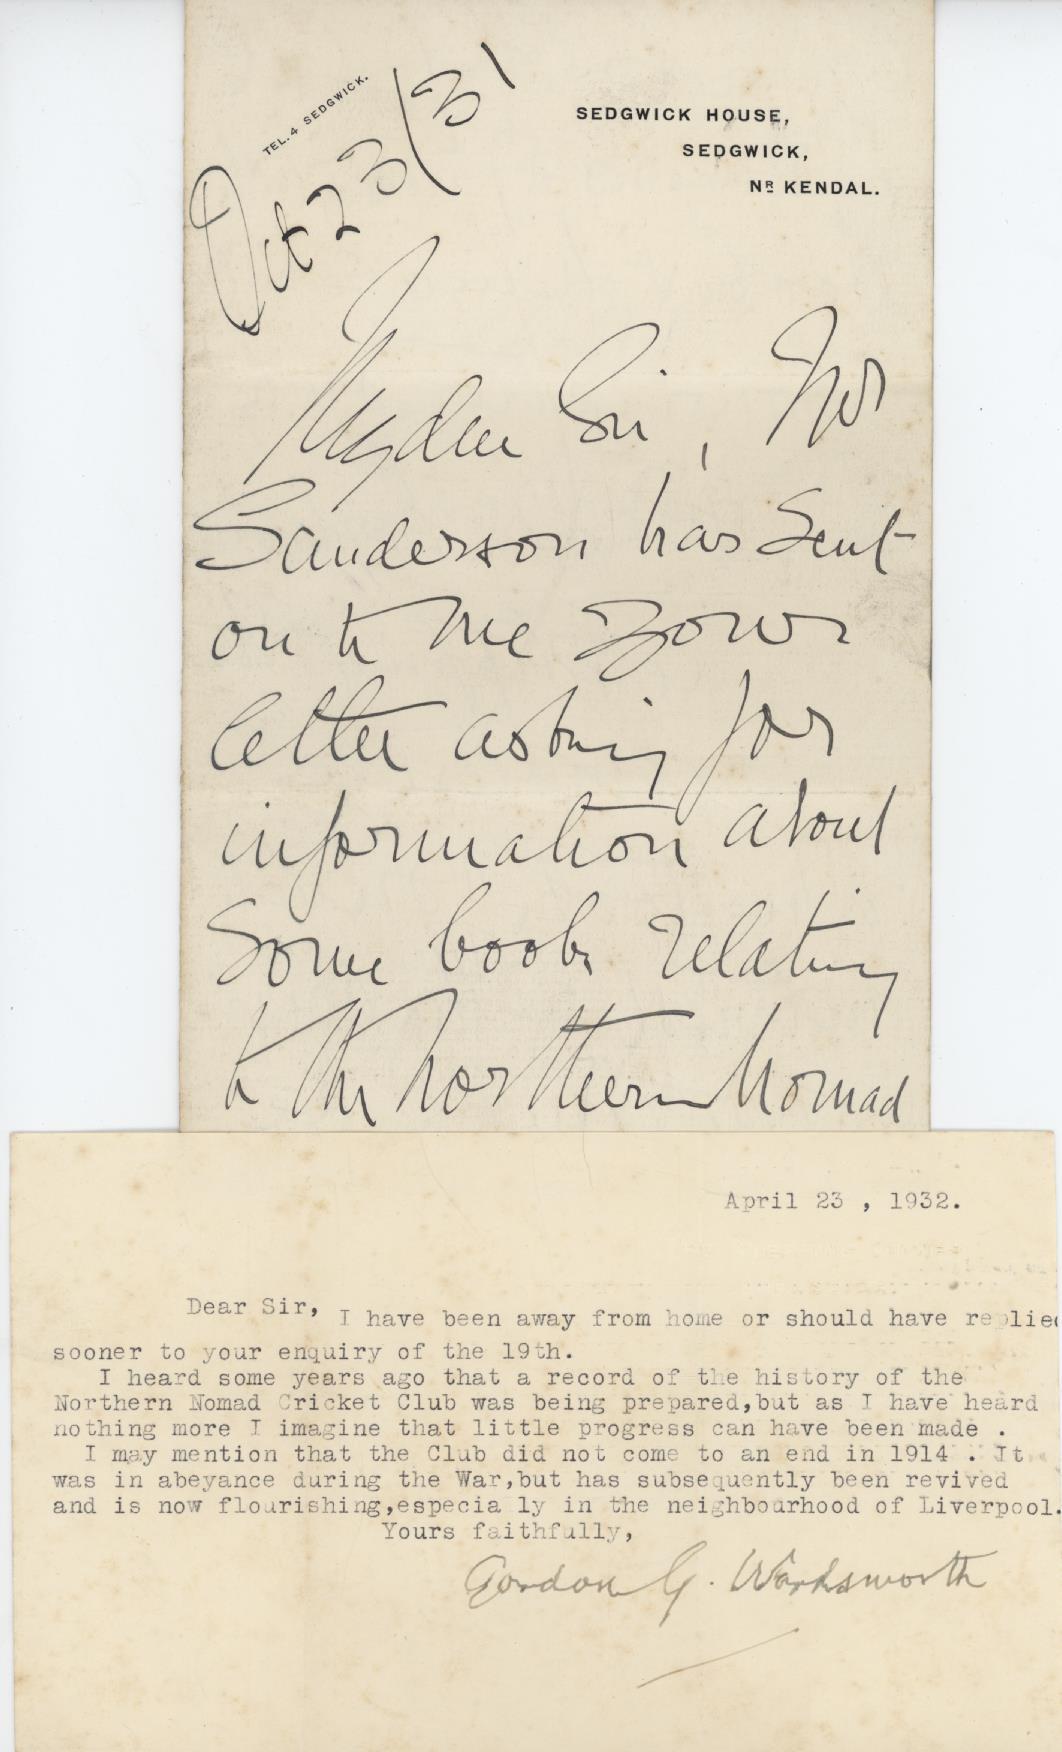 TEL. 4 SEDGWICK.
Oct 23/31
SEDGWICK HOUSE,
SEDGWICK,
NR KENDAL.
My dear Sir, Mrs
Sanderson has sent
on to me your
letter asking for
information about
some books relating
to the Northern Nomad
April 23 , 1932.
Dear Sir,
I have been away from home or should have replied
sooner to your enquiry of the 19th.
I heard some years ago that a record of the history of the
Northern Nomad Cricket Club was being prepared,but as I have heard
nothing more I imagine that little progress can have been made .
I may mention that the Club did not come to an end in 1914 . It
was in abeyance during the War,but has subsequently been revived
and is now flourishing,especia ly in the neighbourhood of Liverpool.
Yours faithfully,
Gordon G. Wordsworth